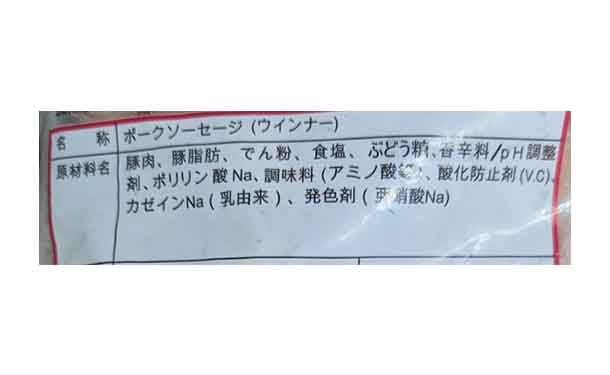 名 称 ポークソーセージ (ウインナー)
原材料名 豚肉、豚脂肪、でん粉、食塩、ぶどう糖、香辛料/pH調整
剤、ポリリン酸Na、調味料 (アミノ酸)、酸化防止剤(V.C)、
カゼインNa ( 乳由来 ) 、発色剤 ( 亜硝酸Na)